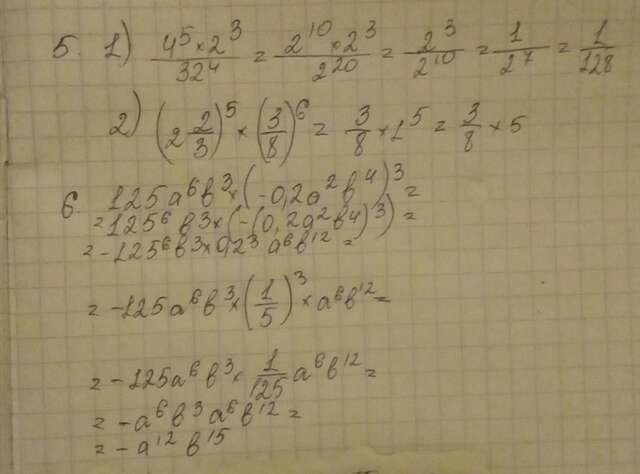 5. 1) 4⁵×2³/32⁴ = 2¹⁰×2³/2²⁰ = 2³/2¹⁰ = 1/2⁷ = 1/128
2) (2 2/3)⁵ × (3/8)⁶ = 3/8 × 1⁵ = 3/8 × 5
6. 125a⁶b³×(-0,2a²b⁴)³ =
= 125⁶ b³×(-(0,2a²b⁴)³) =
= -125⁶b³×0,2³ a⁶b¹² =
= -125a⁶b³×(1/5)³×a⁶b¹² =
= -125a⁶b³× 1/125 a⁶b¹² =
= -a⁶b³a⁶b¹² =
= -a¹²b¹⁵